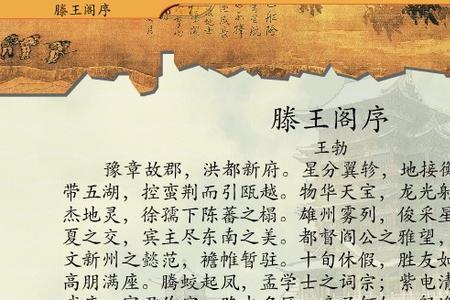 滕王阁序
滕王阁序
王勃
豫章故郡，洪都新府。星分翼轸，地接衡
带五湖，控蛮荆而引瓯越。物华天宝，龙光射
杰地灵，徐孺下陈蕃之榻。雄州雾列，俊采星
夏之交，宾主尽东南之美。都督阎公之雅望，
文新州之懿范，襜帷暂驻。十旬休假，胜友如
高朋满座。腾蛟起凤，孟学士之词宗；紫电清